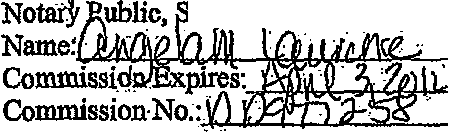 Notary Public, S
Name: Angela M Lawrence
Commission Expires: April 3, 2012
Commission No.: DD977258